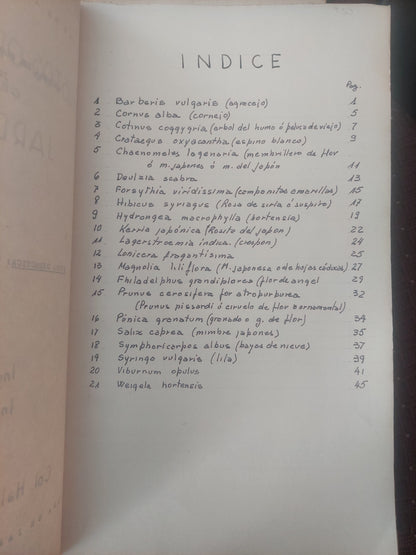 INDICE
Pag.
1 Barberis vulgaris (agracejo) 1
2 Cornus alba (cornejo) 5
3 Cotinus coggygria (arbol del humo ó peluca de viejo) 7
4 Crataegus oxyacantha (espino blanco) 9
5 Chaenomeles lagenaria (membrillero de flor
ó m. japones ó m. del japón 11
6 Deulzia scabra 13
7 Forsythia viridissima (campanitas amarillas) 15
8 Hibicus syriagus (Rosa de siria ó suspiro) 17
9 Hydrongea macrophylla (hortensia) 19
10 Karria japónica (Rosita del japon) 22
11 Lagerstroemia indica. (crespón) 24
12 Lonicera fragantisima 25
13 Magnolia liliflora (M. japonesa o de hojas cáducas) 27
14 Fhiladelphus grandiplores (flor de angel 29
15 Prunus cerasifera for atropurpurea 32
(Prunus pissardi ó ciruelo de flor ó ornamental)
16 Púnica granatum (granado o g. de flor) 34
17 Salix caprea (mimbre japones) 35
18 Symphoricarpos albus (bayas de nieve) 37
19 Syringo vulgaris (lila) 39
20 Viburnum opulus 41
21 Weigela hortensis 45